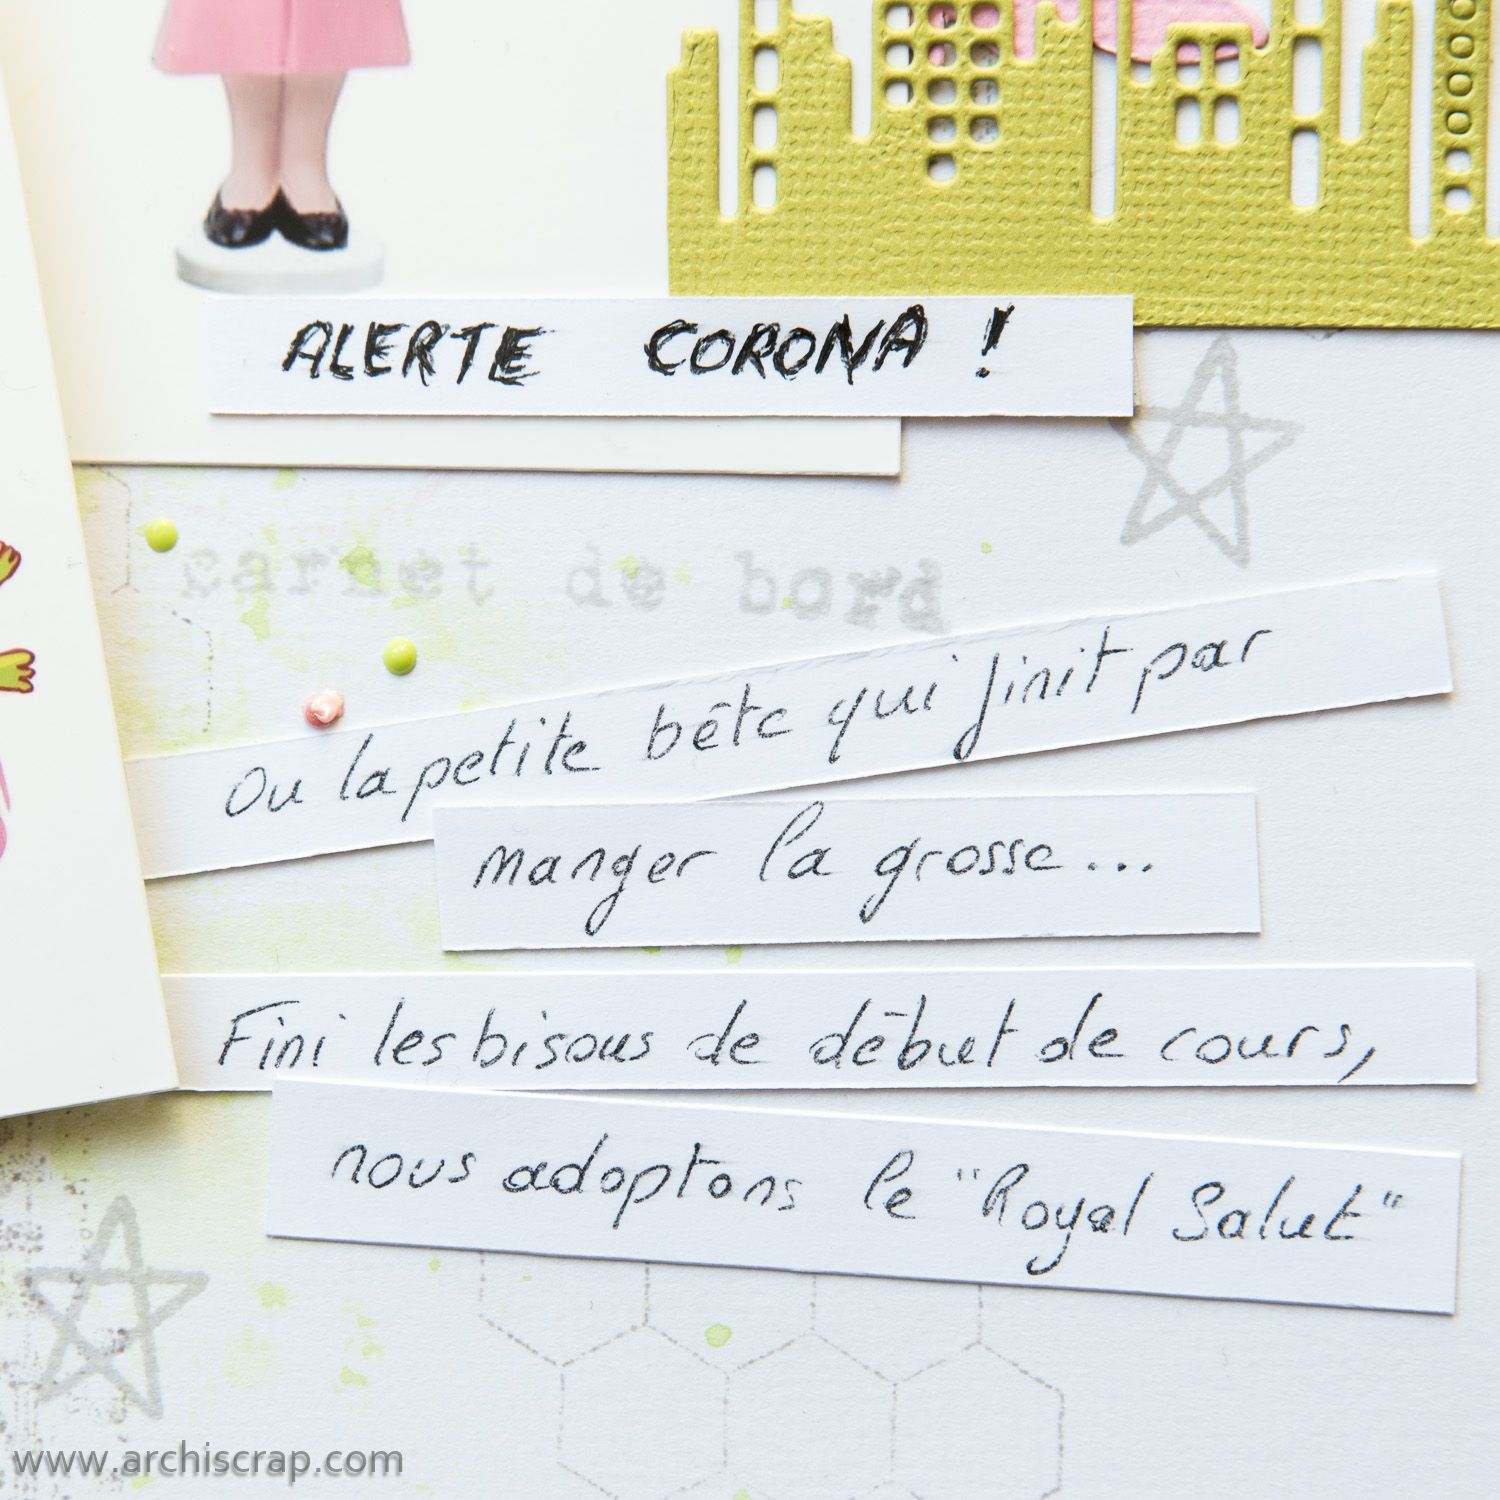 ALERTE CORONA !
carnet de bord
Ou la petite bête qui finit par
manger la grosse...
Fini les bisous de début de cours,
nous adoptons le "Royal Salut"
www.archiscrap.com